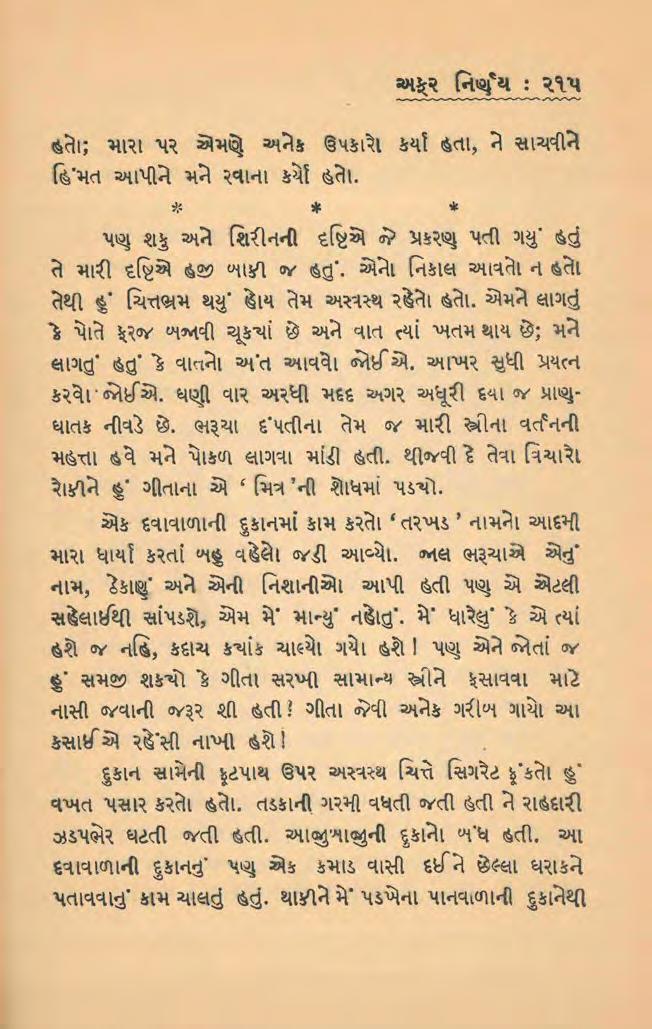 અફર નિર્ણય : ૨૧૫
હતો; મારા પર એમણે અનેક ઉપકારો કર્યા હતા, ને સાચવીને
હિંમત આપીને મને રવાના કર્યો હતો.
* * *
પણ શકુ અને શિરીનની દૃષ્ટિએ જે પ્રકરણ પતી ગયું હતું
તે મારી દૃષ્ટિએ હજી બાકી જ હતું. એનો નિકાલ આવતો ન હતો
તેથી હું ચિત્તભ્રમ થયું હોય તેમ અસ્વસ્થ રહેતો હતો. એમને લાગતું
કે પોતે ફરજ બજાવી ચૂકયાં છે અને વાત ત્યાં ખતમ થાય છે; મને
લાગતું હતું કે વાતનો અંત આવવો જોઈએ. આખર સુધી પ્રયત્ન
કરવો જોઈએ. ઘણી વાર અરધી મદદ અગર અધૂરી દયા જ પ્રાણ-
ઘાતક નીવડે છે. ભરૂચા દંપતીના તેમ જ મારી સ્ત્રીના વર્તનની
મહત્તા હવે મને પોકળ લાગવા માંડી હતી. થીજવી દે તેવા વિચારો
રોકીને હું ગીતાના એ ‘ મિત્ર ’ની શોધમાં પડયો.
એક દવાવાળાની દુકાનમાં કામ કરતો ‘ તરખડ ’ નામનો આદમી
મારા ધાર્યા કરતાં બહુ વહેલો જડી આવ્યો. જાલ ભરૂચાએ એનું
નામ, ઠેકાણું અને એની નિશાનીઓ આપી હતી પણ એ એટલી
સહેલાઈથી સાંપડશે, એમ મેં માન્યું નહોતું. મેં ધારેલું કે એ ત્યાં
હશે જ નહિ, કદાચ કયાંક ચાલ્યો ગયો હશે! પણ એને જોતાં જ
હું સમજી શકયો કે ગીતા સરખી સામાન્ય સ્ત્રીને ફસાવવા માટે
નાસી જવાની જરૂર શી હતી? ગીતા જેવી અનેક ગરીબ ગાયો આ
કસાઈએ રહેંસી નાખી હશે!
દુકાન સામેની ફૂટપાથ ઉપર અસ્વસ્થ ચિત્તે સિગરેટ ફૂંકતો હું
વખત પસાર કરતો હતો. તડકાની ગરમી વધતી જતી હતી ને રાહદારી
ઝડપભેર ઘટતી જતી હતી. આજુબાજુની દુકાનો બંધ હતી. આ
દવાવાળાની દુકાનનું પણ એક કમાડ વાસી દઈને છેલ્લા ઘરાકને
પતાવવાનું કામ ચાલતું હતું. થાકીને મેં પડખેના પાનવાળાની દુકાનેથી